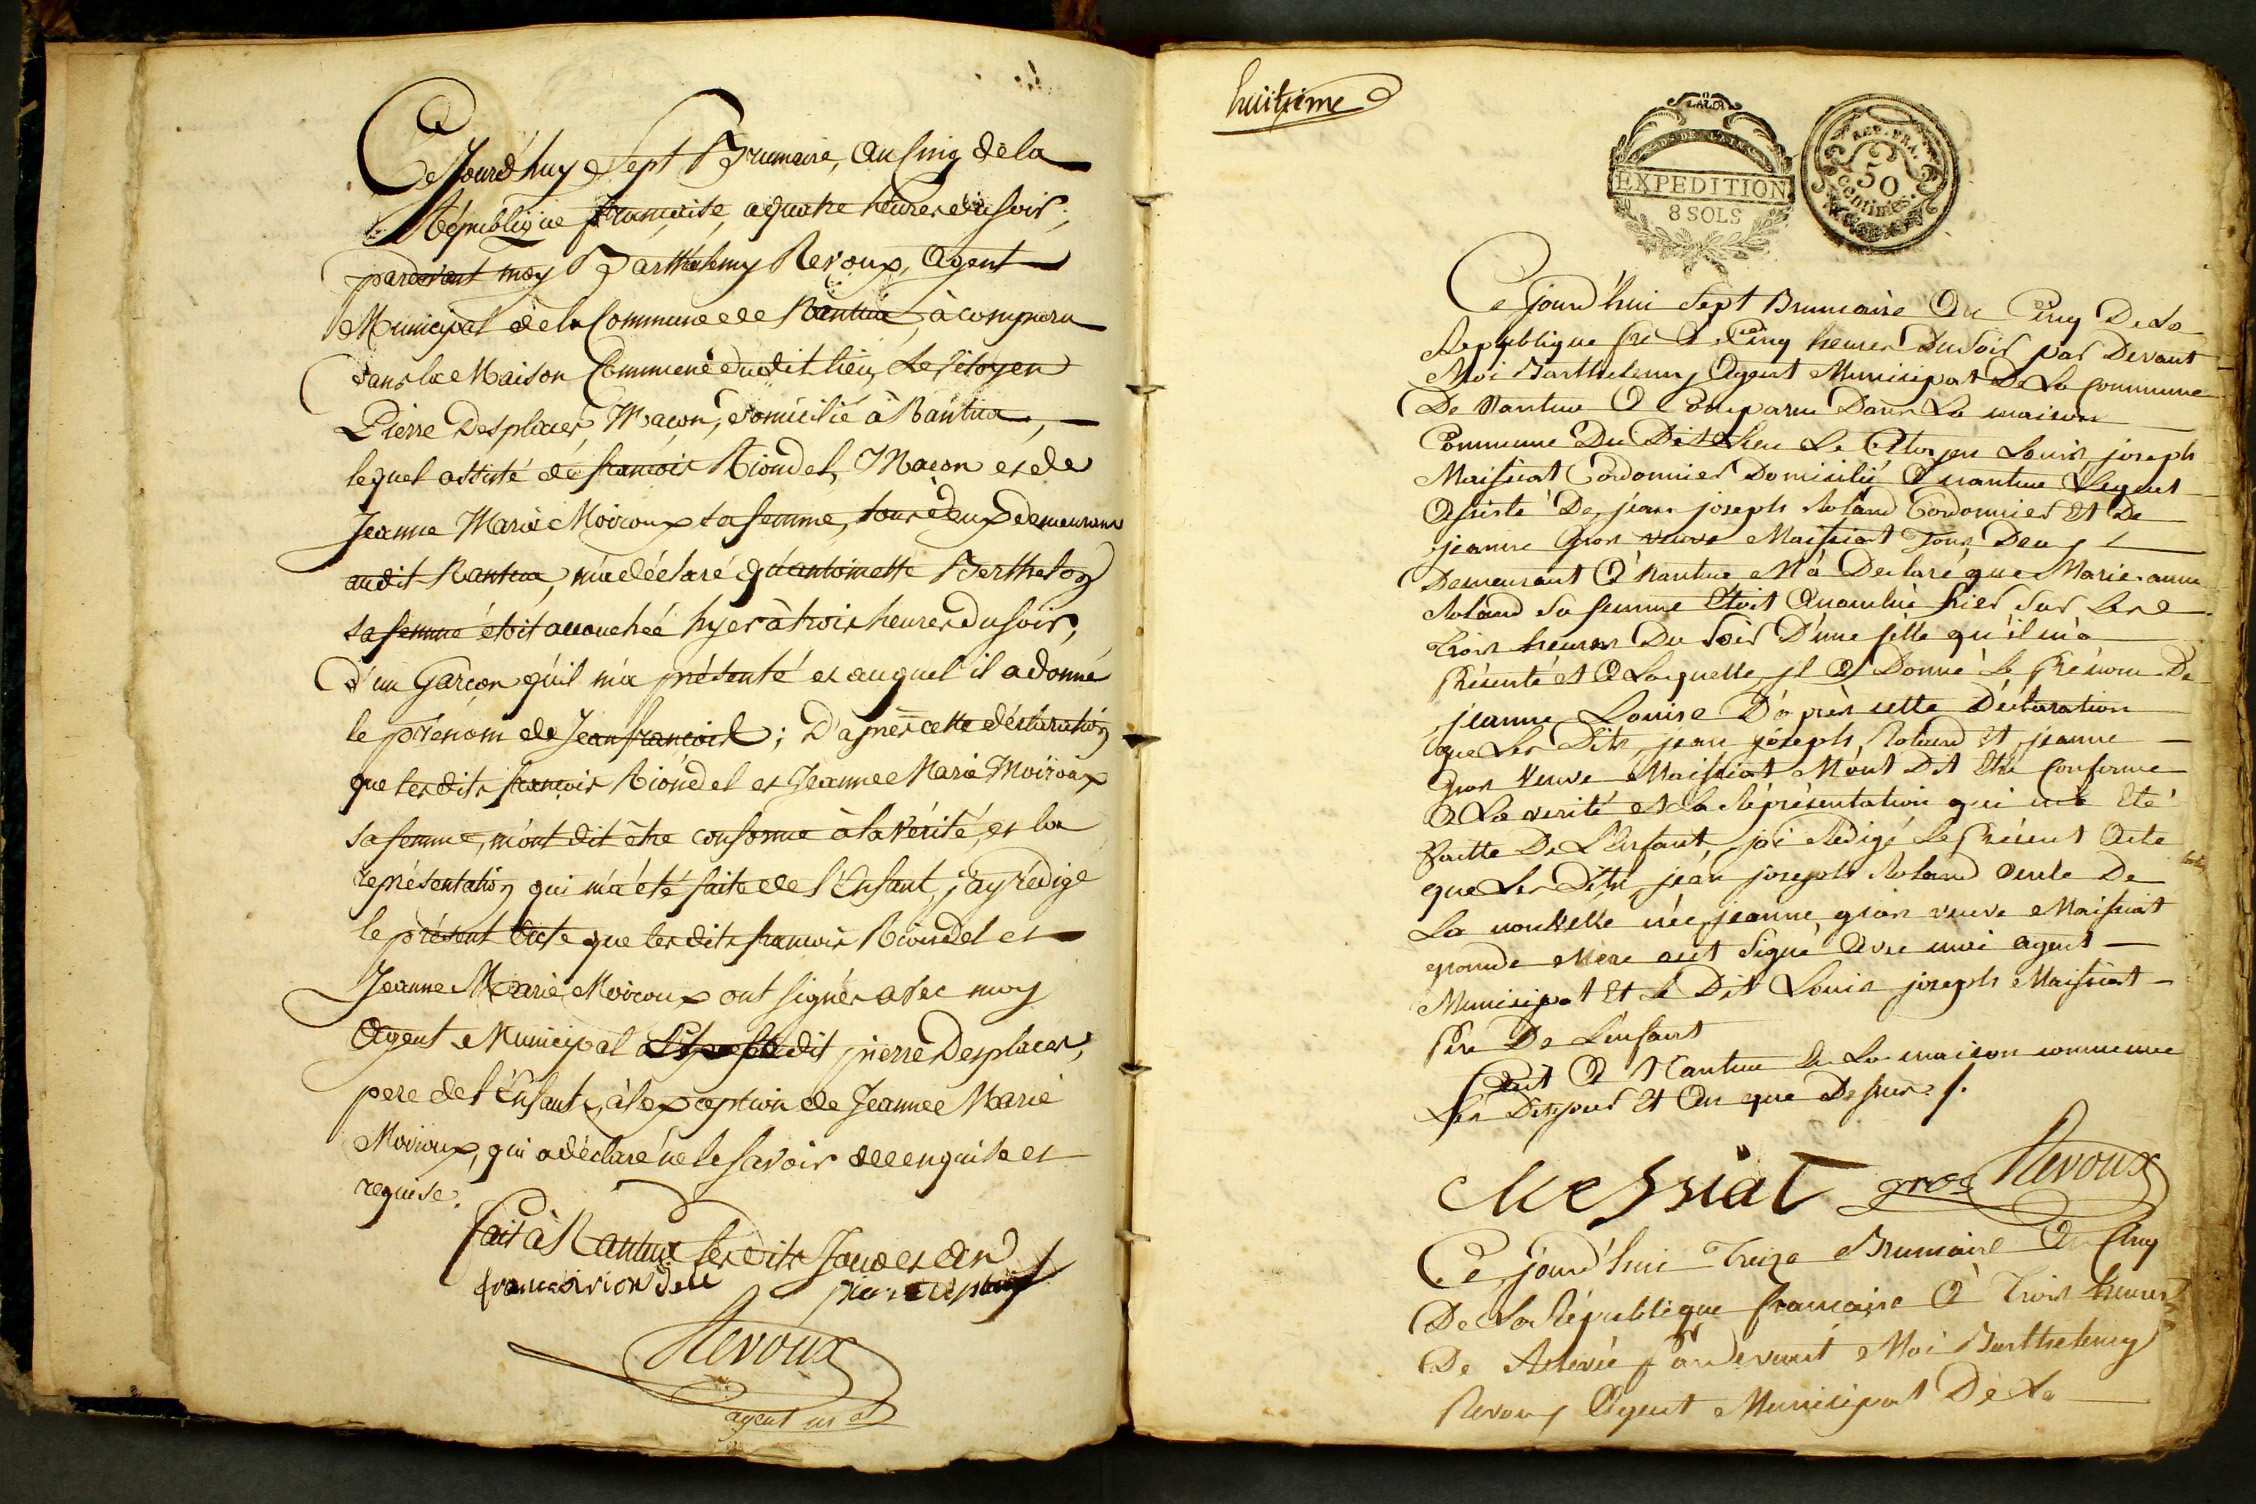 Cejourd'huy Sept Brumaire, an Cinq de la
République française, a quatre heures du soir,
pardevant moy Barthélemy Revoux, Agent
Municipal de la Commune de Nantua, à comparu
dans la Maison Commune dudit lieu, Le Citoyen
Pierre Desplaces, Maçon, domicilié à Nantua,
lequel assisté de françois Rioudel, Maçon et de
Jeanne Marie Moiroux sa femme, tous deux demeurans
audit Nantua, m'a déclaré qu'antoinette Berthelon
sa femme étoit accouchée hyer à trois heures du soir,
d'un Garçon qu'il m'a présenté et auquel il a donné
le prénom de Jean françois ; D'après cette déclaration
que lesdits françois Rioudel et Jeanne Marie Moiroux
sa femme, m'ont dit être conforme à la Vérité, et la
représentation qui m'a été faite de l'Enfant, j'ay rédigé
le présent Acte que lesdits françois Rioudel et
Jeanne Marie Moiroux ont signés avec moy
Agent Municipal dit pierre Desplaces,
pere de l'Enfant, à l'exception de Jeanne Marie
Moiroux, qui a déclaré ne le savoir de enquise et
requise.
fait à Nantua lesdits Jour et an
francoi rion dell pierre
Revoux
agent m al
huitieme
LA LOI
EXPEDITION
8 SOLS
REP. FRA.
50
Centimes.
Ce jourd'hui Sept Brumaire An Cinq De La
Republique fse A Cinq heures Du Soir par Devant
Moi Barthelemy Agent Municipal De La Commune
De Nantua A Comparu Dans La maison
Commune Du Dit Lieu Le Citoyen Louis joseph
Maissiat Cordonnier Domicilié A nantua Lequel
Assisté De jean joseph Roland Cordonnier Et De
jeanne gros veuve Maissiat Tous Deux
Demeurant A Nantua M'a Declaré que Marie anne
Roland Sa femme Etoit Acouchée hier Sur Les
trois heures Du Soir D'une fille qu'il m'a
Présenté et A Laquelle il A Donné Le Prénom De
jeanne Louise D'après cette Déclaration
que Les Dits jean joseph Roland Et jeanne
gros Veuve Maissiat M'ont Dit Etre Conforme
A La verité et La Réprésentation qui m'a Eté
faitte De L'Enfant j'ai Redigé Le Présent Acte
que Les Dits jean joseph Roland oncle De
La nouvelle née jeanne gros veuve Maissiat
grande Mere ont Signé Avec moi agent
Municipal Et Le Dit Louis joseph Maissiat
Pere De L'enfant
fait A Nantua La maison commune
Les Dits jour Et An que Dessus
Messiat gros Revoux
Ce jourd'hui Treize Brumaire An Cinq
De La République française A Trois heures
De Relevée Par devant Moi Barthelemy
Revoux Agent Municipal De La